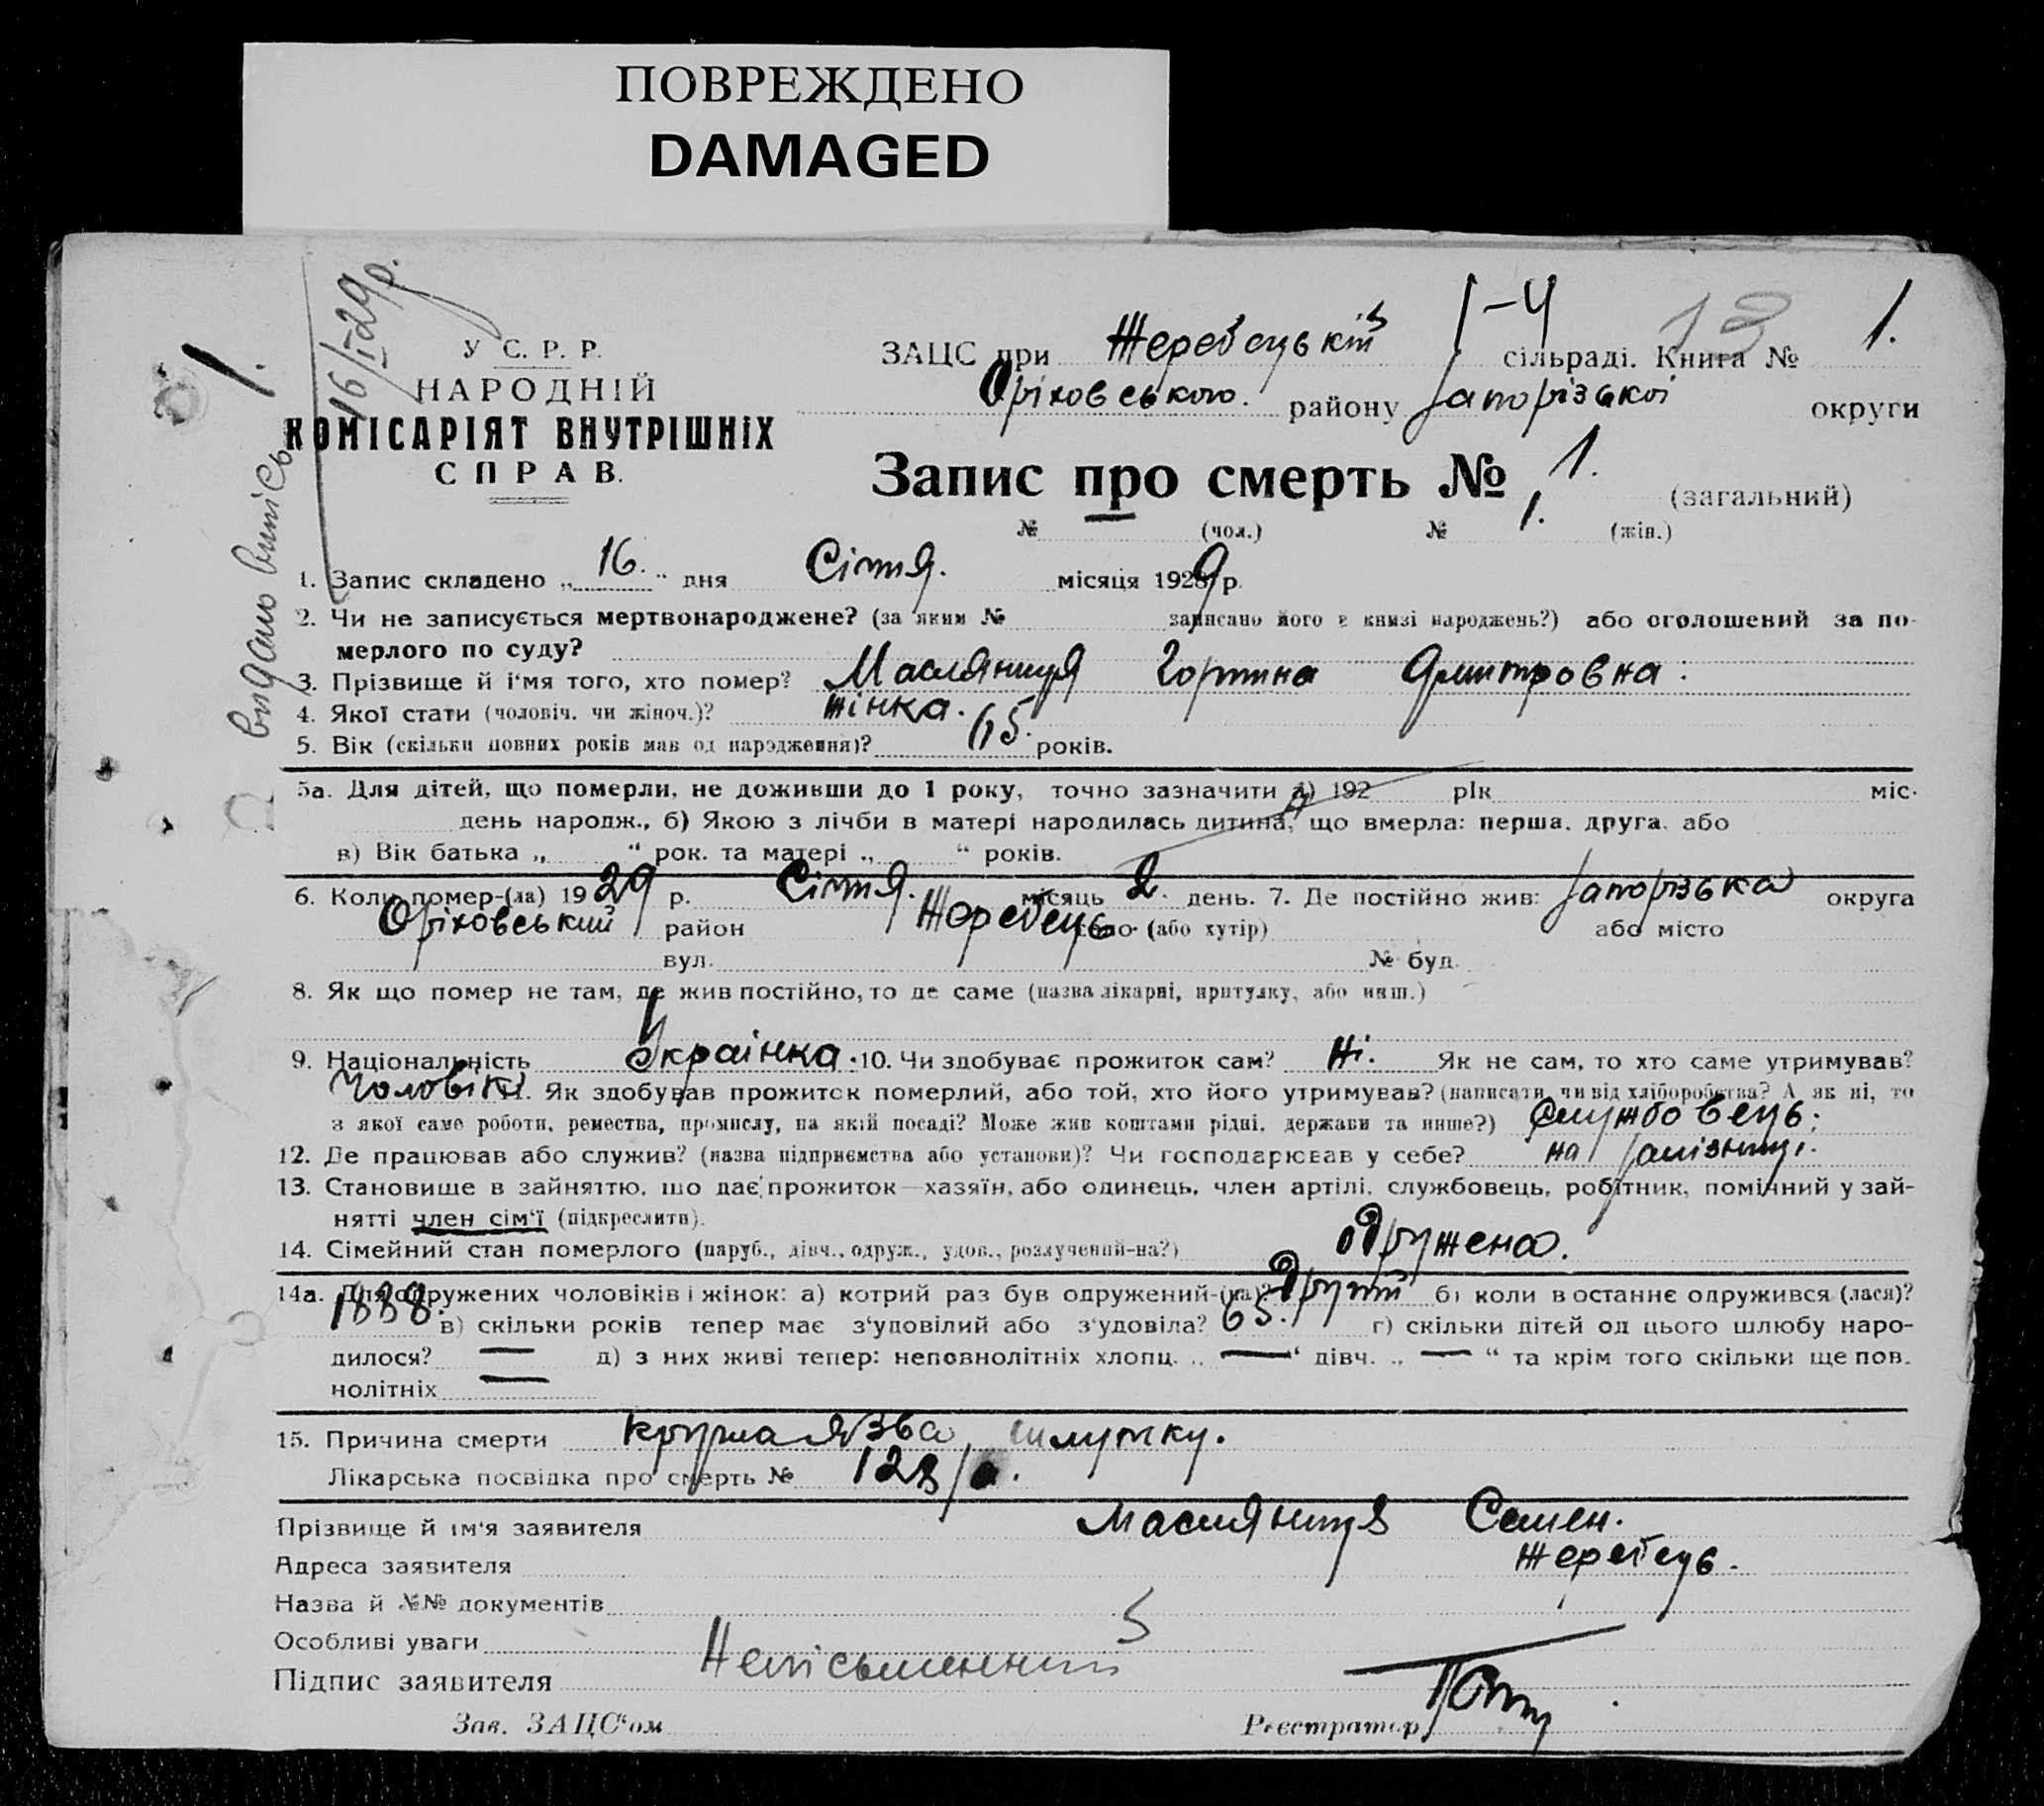 ПОВРЕЖДЕНО
DAMAGED
1.
16/I-29р.
видано випісь
У С. Р. Р.
НАРОДНІЙ
КОМІСАРІЯТ ВНУТРІШНІХ
СПРАВ.
I-Ч
13
ЗАЦС при Жеребецькій сільраді. Книга № 1.
Оріховського. району Запорізької округи
Запис про смерть № 1. (загальний)
№ — (чол.) № 1. (жін.)
1. Запис складено „ 16. “ дня Січня. місяця 1929 р.
2. Чи не записується мертвонароджене? (за яким № записано його в книзі народжень?) або оголошений за по-
мерлого по суду?
3. Прізвище й і'мя того, хто помер? Масляниця Горпина Дмитровна.
4. Якої стати (чоловіч. чи жіноч.)? жінка.
5. Вік (скільки повних років мав од народження)? 65. років.
5а. Для дітей, що померли, не доживши до 1 року, точно зазначити а) 192 рік міс.
день народж., б) Якою з лічби в матері народилась дитина, що вмерла: перша, друга, або
в) Вік батька „ “ рок. та матері „ “ років.
6. Коли помер-(ла) 1929 р. Січня. місяць 2. день. 7. Де постійно жив: Запорізька округа
Оріховський район Жеребець село (або хутір) або місто
вул. № буд.
8. Як що помер не там, де жив постійно, то де саме (назва лікарні, притулку, або инш.)
9. Національність Українка. 10. Чи здобуває прожиток сам? Ні. Як не сам, то хто саме утримував?
Чоловік. Як здобував прожиток померлий, або той, хто його утримував? (написати, чи від хліборобства? А як ні, то
з якої саме роботи, ремества, промислу, на якій посаді? Може жив коштами рідні, держави та инше?) Службовець;
12. Де працював або служив? (назва підприємства або установи)? Чи господарював у себе? на залізниці.
13. Становище в зайняттю, що дає прожиток—хазяїн, або одинець, член артілі, службовець, робітник, помічний у зай-
нятті член сім'ї (підкреслити).
14. Сімейний стан померлого (паруб., дівч., одруж., удов., розлучений-на?) одружена.
14а. Для одружених чоловіків і жінок: а) котрий раз був одружений-(на)? другий б) коли в останнє одружився (лася)?
1888. в) скільки років тепер має з'удовілий або з'удовіла? 65. г) скільки дітей од цього шлюбу наро-
дилося? — д) з них живі тепер: неповнолітніх хлопц. „ — “ дівч. „ — “ та крім того скільки ще пов.
нолітніх —
15. Причина смерти кругла язва шлунку.
Лікарська посвідка про смерть № 123/
Прізвище й ім'я заявителя Масляниця Семен.
Адреса заявителя Жеребець.
Назва й №№ документів
Особливі уваги
Підпис заявителя Неписьменний
Зав. ЗАЦС'ом Реєстратор